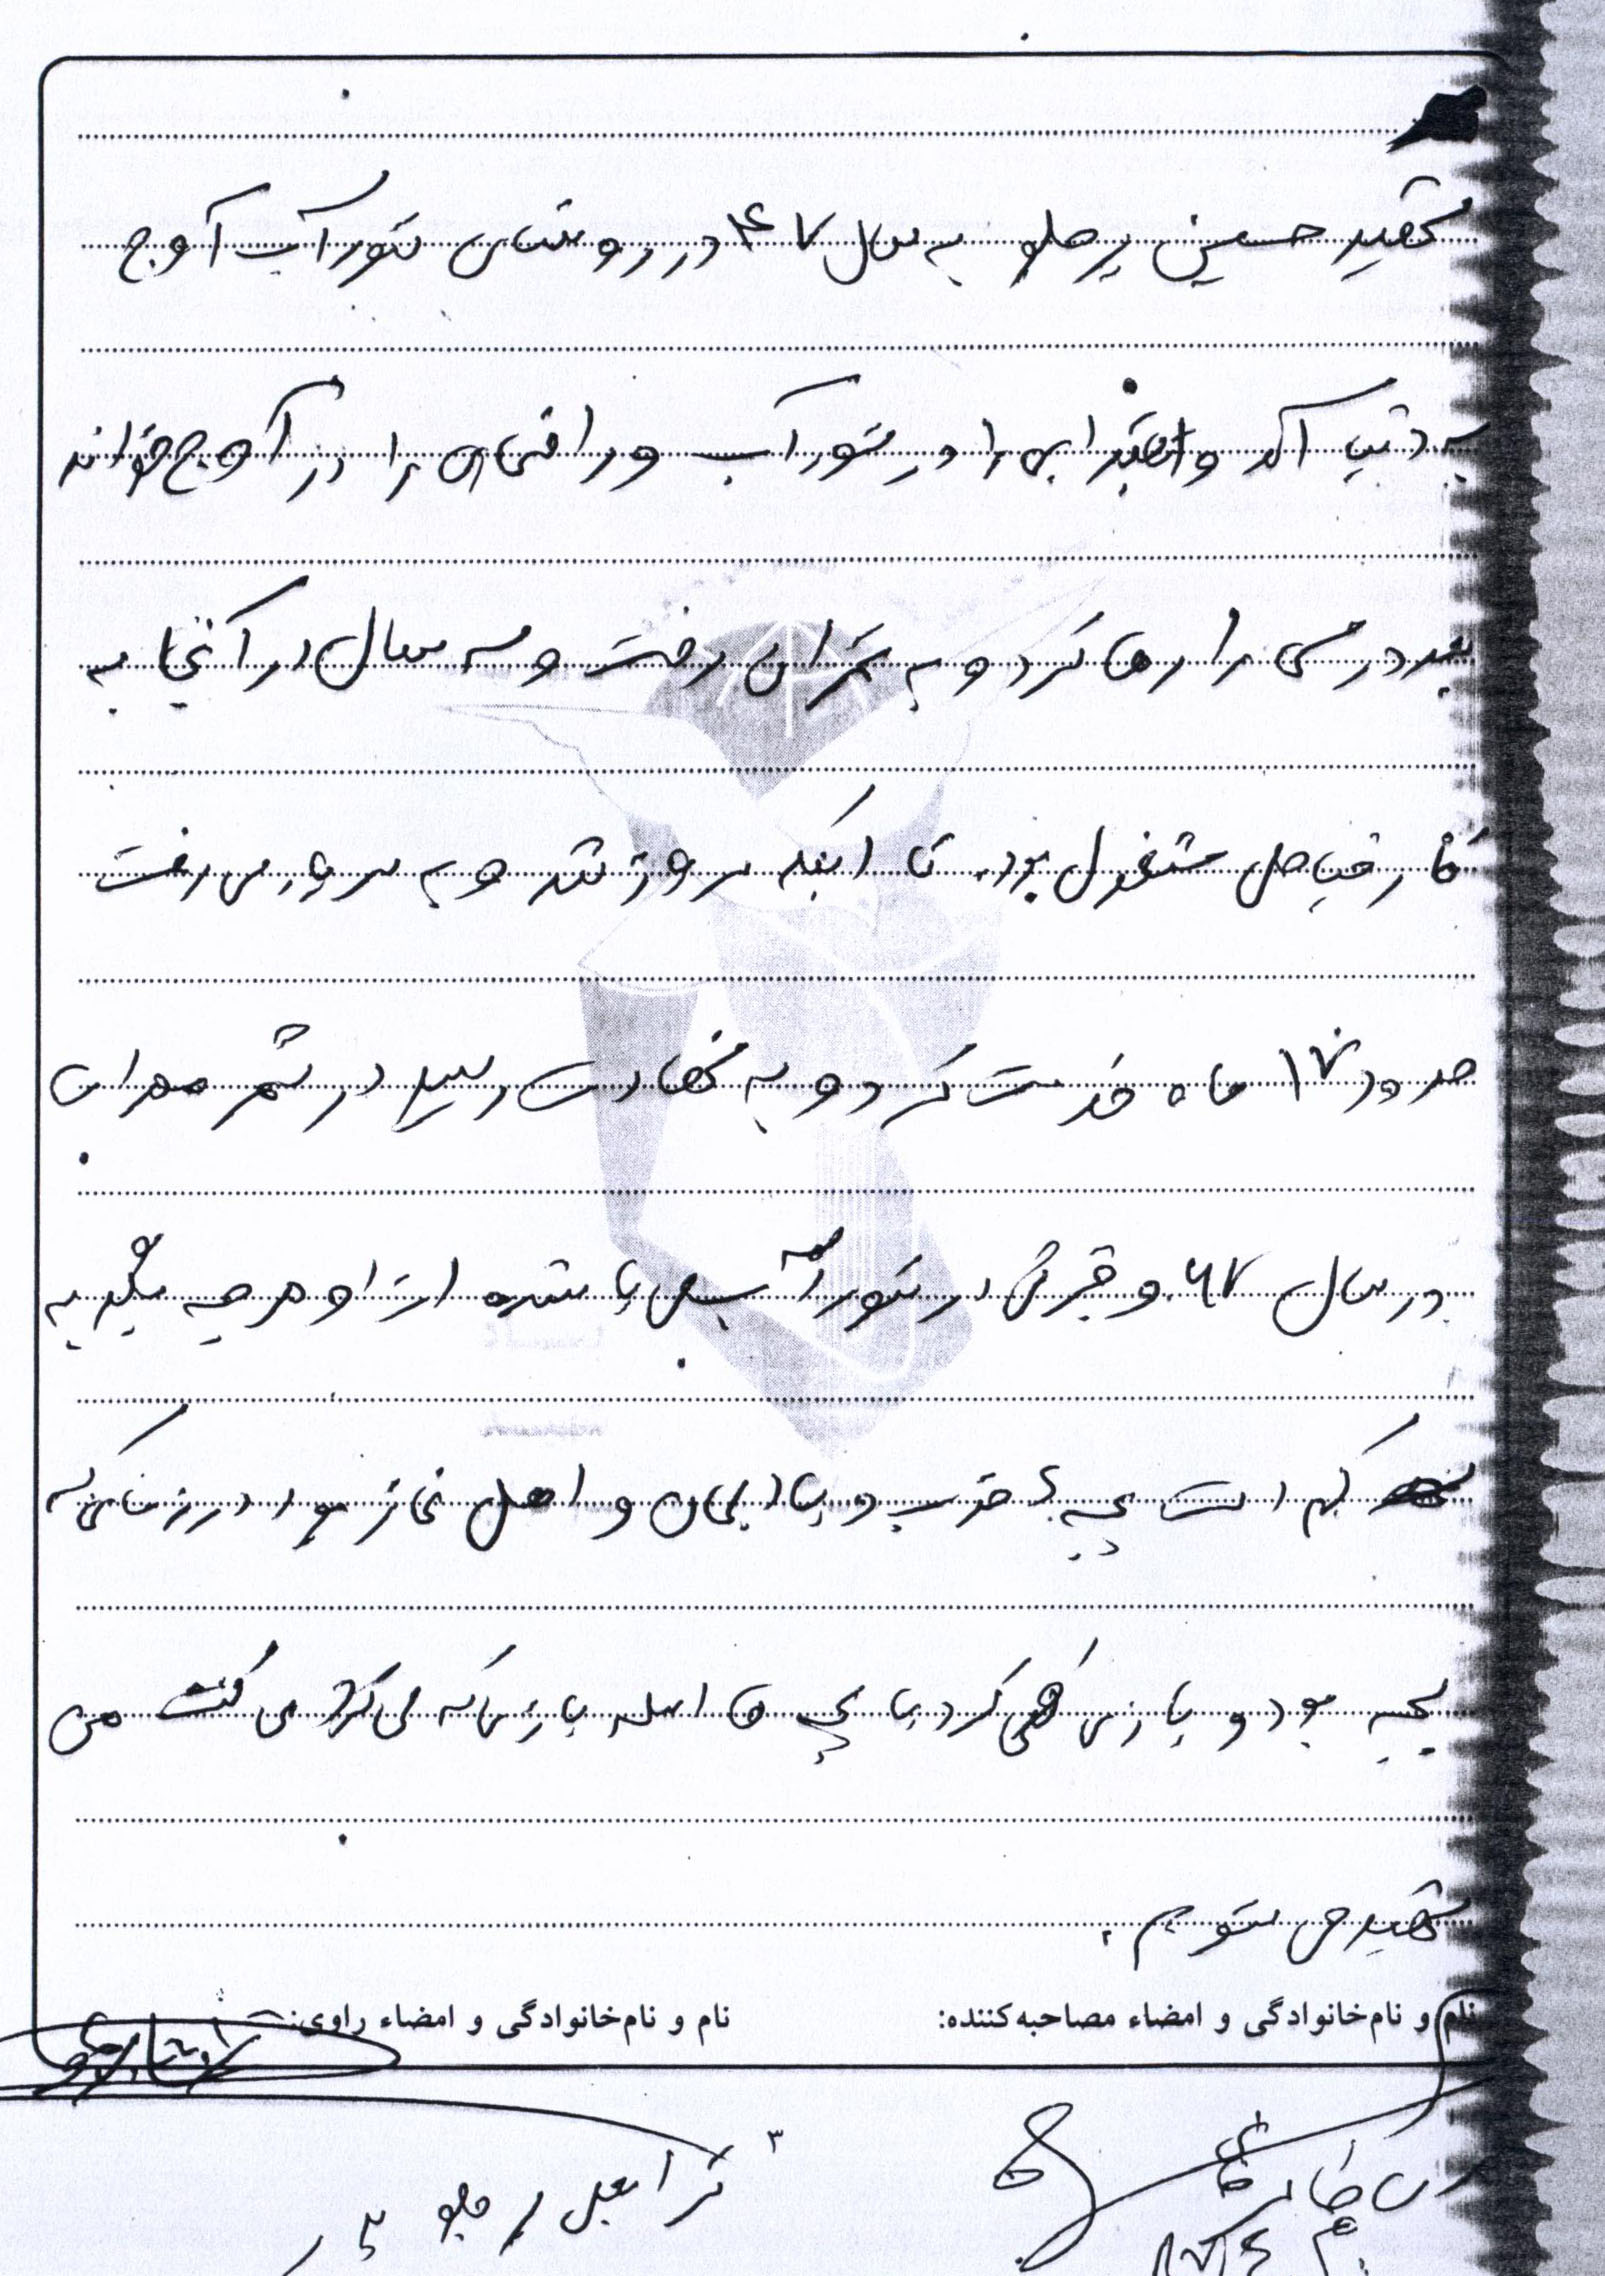 شهید حسین پرملو به سال ۴۷ در روستای شوراب آوج
به دنیا آمد و ابتدایی را در شوراب و راهنمایی را در آوج خواند
بعد درس را رها کرد و به تهران رفت و سه سال در آنجا به
کار خیاطی مشغول بود. تا اینکه سرباز شد و به سربازی رفت
حدود ۱۷ ماه خدمت کرد و به شهادت رسید در شهر مهران
در سال ۶۷ و قبرش در شوراب می باشد از او هر چه بگوید
کم است بچه خوب و با ایمان و اهل نماز بود در زمانی که
بچه بود و بازی می کرد با بچه ها اسلحه بازی که می کرد می گفت من
شهید می شوم.
نام و نام‌خانوادگی و امضاء مصاحبه‌کننده:
نام و نام‌خانوادگی و امضاء راوی:
۳